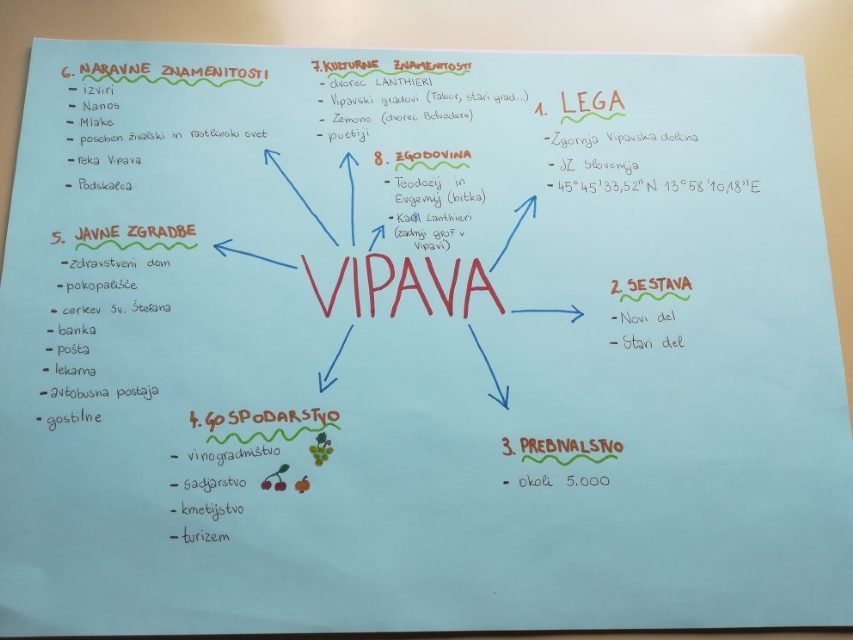 VIPAVA
1. LEGA
- Zgornja Vipavska dolina
- JZ Slovenija
- 45°45'33,52"N 13°58'10,18"E
2. SESTAVA
- Novi del
- Stari del
3. PREBIVALSTVO
- okoli 5.000
4. GOSPODARSTVO
- vinogradništvo
- sadjarstvo
- kmetijstvo
- turizem
5. JAVNE ZGRADBE
- Zdravstveni dom
- pokopališče
- cerkev Sv. Štefana
- banka
- pošta
- lekarna
- avtobusna postaja
- gostilne
6. NARAVNE ZNAMENITOSTI
- izviri
- Nanos
- Mlake
- poseben živalski in rastlinski svet
- reka Vipava
- Podskalca
7. KULTURNE ZNAMENITOSTI
- dvorec LANTHIERI
- Vipavski gradovi (Tabor, stari grad...)
- Zemono (dvorec Belvedere)
- puttiji
8. ZGODOVINA
- Teodozij in
Evgenij (bitka)
- Karl Lanthieri
(zadnji grof v
Vipavi)